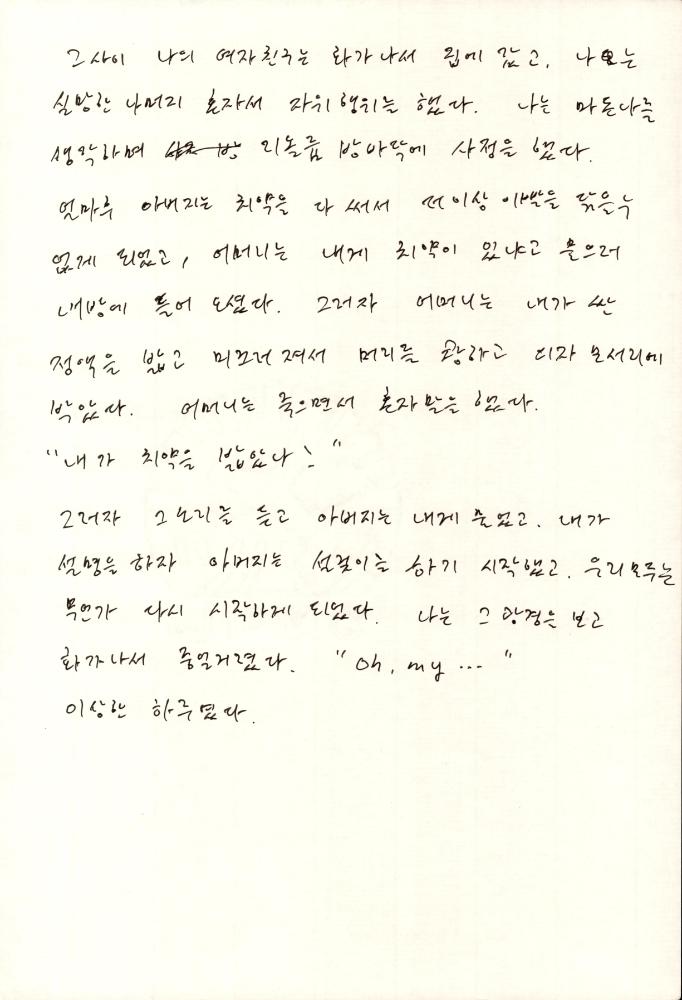 그사이 나의 여자친구는 화가나서 집에 갔고, 나는
실망한 나머지 혼자서 자위행위를 했다. 나는 마돈나를
생각하며 리놀륨 방바닥에 사정을 했다.
얼마후 아버지는 치약을 다 써서 더이상 이빨을 닦을수
없게 되었고, 어머니는 내게 치약이 있냐고 물으러
내방에 들어 오셨다. 그러자 어머니는 내가 싼
정액을 밟고 미끄러져서 머리를 쾅하고 의자 모서리에
박았다. 어머니는 죽으면서 혼자말을 했다.
"내가 치약을 밟았나!"
그러자 그 소리를 듣고 아버지는 내게 물었고, 내가
설명을 하자 아버지는 설겆이를 하기 시작했고, 우리모두는
무언가 다시 시작하게 되었다. 나는 그 광경을 보고
화가나서 중얼거렸다. "Oh, my ..."
이상한 하루였다.